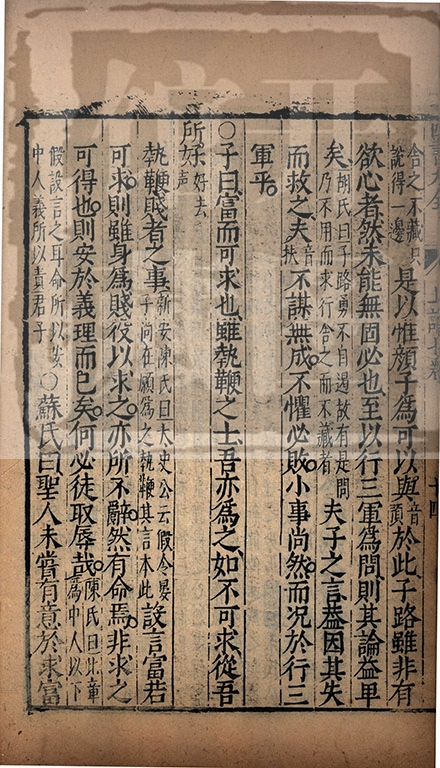 舍之不藏只說得一邊是以惟顏子爲可以與音預於此子路雖非有
欲心者然未能無固必也至以行三軍爲問則其論益卑
矣胡氏曰子路勇不自遏故有是問乃不用而求行舍之而不藏者夫子之言蓋因其失
而救之夫音扶不謀無成不懼必敗小事尚然而况於行三
軍乎
○子曰富而可求也雖執鞭之士吾亦爲之如不可求從吾
所好好去声
執鞭賤者之事新安陳氏曰太史公云假令晏子尚在願爲之執鞭其言本此設言富若
可求則雖身爲賤役以求之亦所不辭然有命焉非求之
可得也則安於義理而已矣何必徒取辱哉陳氏曰此章爲中人以下
假設言之耳命所以安中人義所以責君子○蘇氏曰聖人未嘗有意於求富